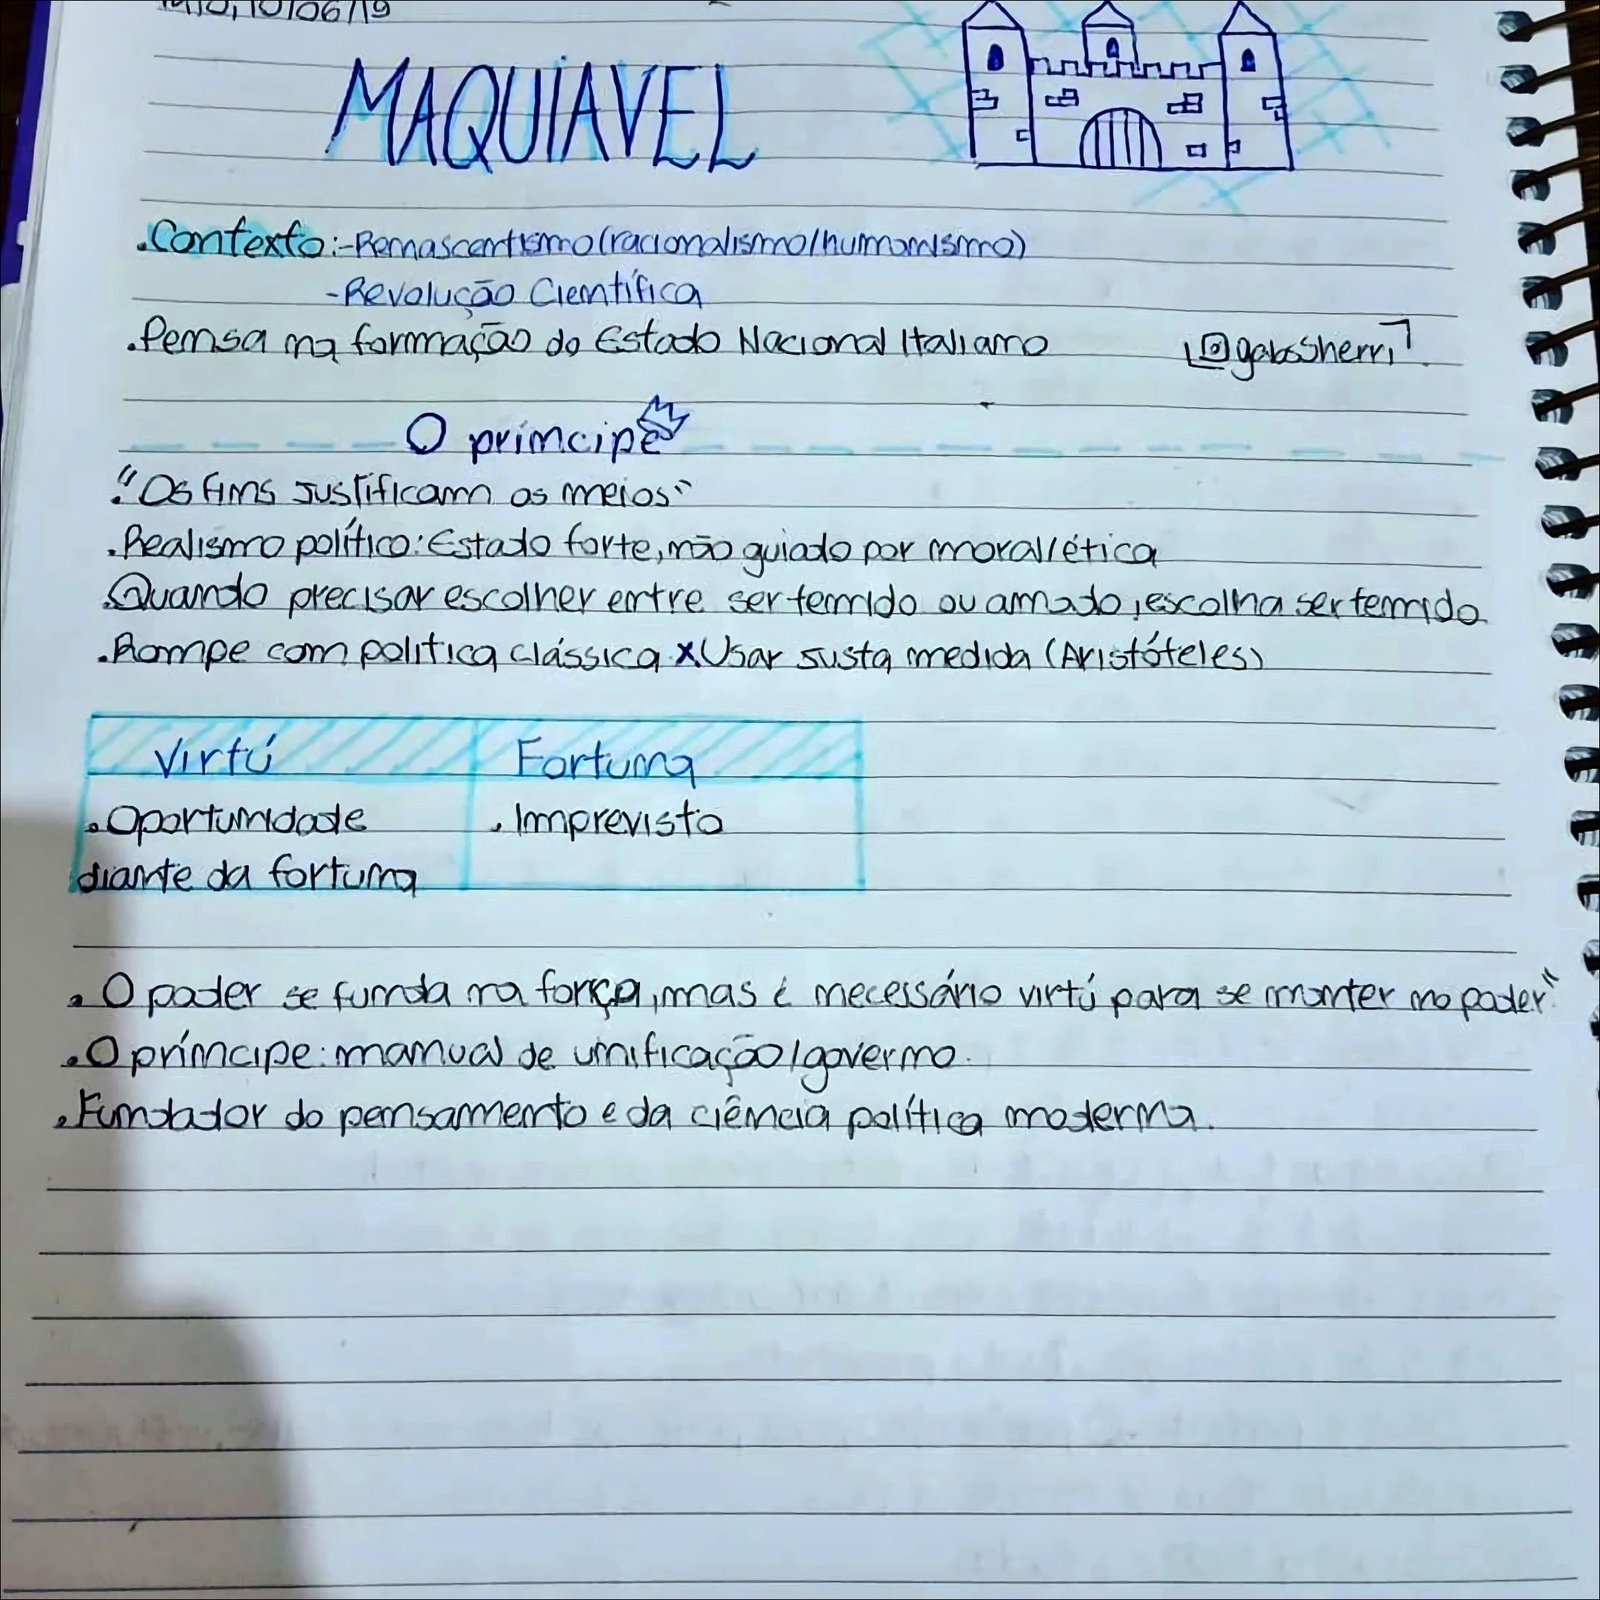 10/06/19
MAQUIAVEL
.Contexto:-Renascentismo(racionalismo/humanismo)
-Revolução Científica
.Pensa na formação do Estado Nacional Italiano
@gabssherri
O príncipe
."Os fins justificam os meios"
.Realismo político: Estado forte, não guiado por moral/ética
.Quando precisar escolher entre ser temido ou amado, escolha ser temido
.Rompe com politica clássica x Usar justa medida (Aristóteles)
Virtú Fortuna
.Oportunidade . Imprevisto
diante da fortuna
. O poder se funda na força, mas é necessário virtú para se manter no poder"
.O príncipe: manual de unificação/governo.
.Fundador do pensamento e da ciência política moderna.